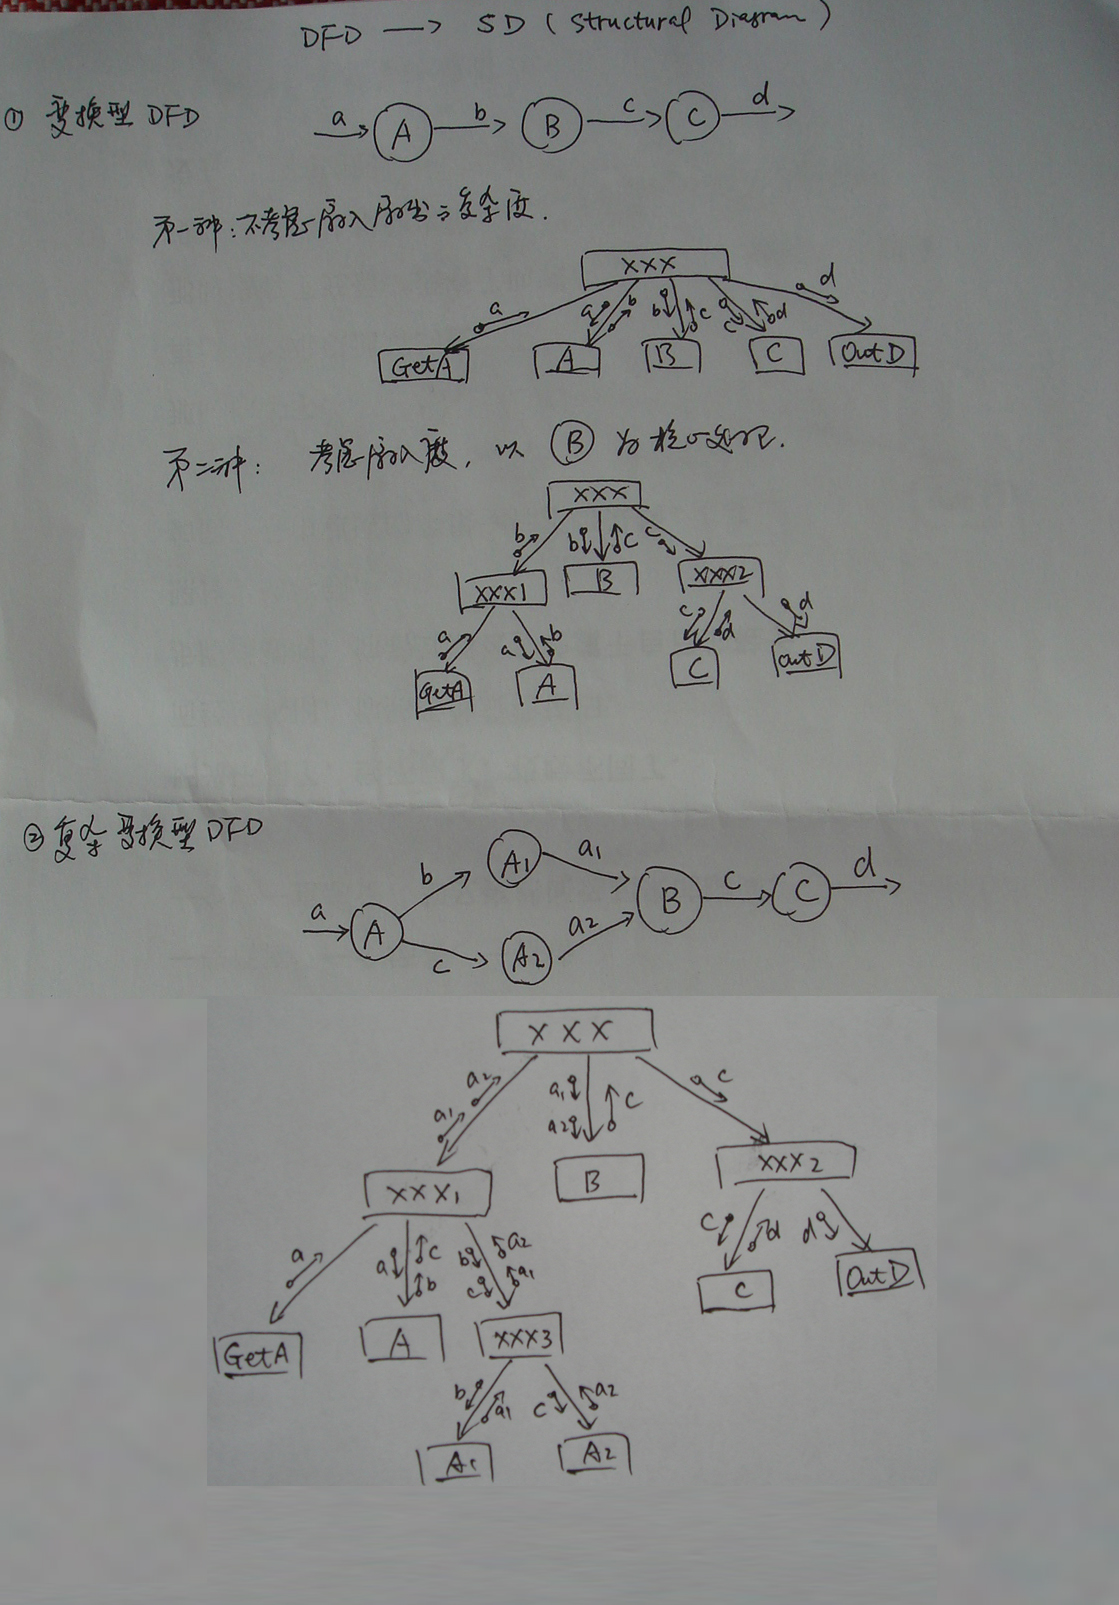 DFD → SD ( Structural Diagram )
① 变换型 DFD
a A b B c C d
第一种: 不考虑扇入扇出与复杂度.
XXX
a a b b c c bd d
GetA A B C OutD
第二种: 考虑扇入度, 以 B 为核心处理.
XXX
b b c c
XXX1 B XXX2
a a b c d d
GetA A C OutD
② 复杂变换型 DFD
a A b A1 a1 B c C d
c A2 a2
XXX
a1 a2 a1 a2 c c
XXX1 B XXX2
a a c b b c a2 a1 c d d
GetA A XXX3 C OutD
b a1 c a2
A1 A2